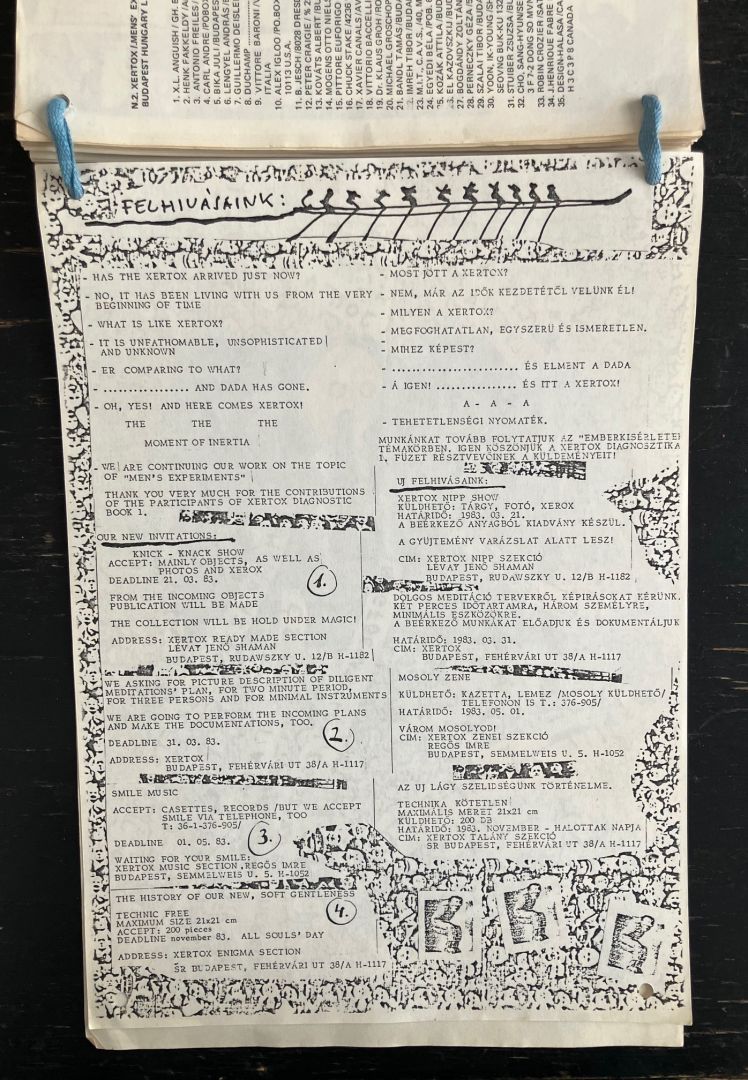 N.2. XERTOX /.MENS' EX
BUDAPEST HUNGARY L
1. X.L. ANGUISH / GH. E
2. HENK FAKKELDY /A
3. ANTONIO FREILES /
4. CARL ANDRE /POBOX
5. BIKA JULI /BUDAPES
6. LENGYEL ANDRÁS /
7. GUILLERMO DEISLE
8. DUCHAMP
9. VITTORE BARONI /V
ITALIA
10. ALEX IGLOO /PO.BOX
10113 U.S.A.
11. B. JESCH /8028 DRES
12. PETER CRAIGIE / % 2
13. KOVÁTS ALBERT /BU
14. MOGENS OTTO NIELS
15. PITTORE EUFORICO
16. CHUCK STAKE /4236
17. XAVIER CANALS /AV
18. VITTORIO BACCELLI
19. Dr. KLAUS GROH /RO
20. MICHAEL GROSCHOP
21. BANDL TAMÁS /BUDA
22. TIBOR /BUDA
23. M.I.T., C.A.V.S. /40, M
24. EGYEDI BÉLA /POB. 6
25. KOZÁK ATTILA /BUD
26. EL KAZOVSZKIJ /BUD
27. BOGDANDY ZOLTÁN
28. PERNECZKY GÉZA /
29. TIBOR
30. YOON, IK-YOUNG /SH
SEOVING BUK-KU 132
31. STUIBER ZSUZSA /BU
32. CHO, SANG-HYUN /SE
3 F 7-2 DONG SO MVN
33. ROBIN CROZIER /SAT
34. J.HENRIQUE FABRE
35. DESIGN-HALASA /CA
H 3 C 3 P 8 CANADA
FELHIVÁSAINK:
- HAS THE XERTOX ARRIVED JUST NOW?
- NO, IT HAS BEEN LIVING WITH US FROM THE VERY
BEGINNING OF TIME
- WHAT IS LIKE XERTOX?
- IT IS UNFATHOMABLE, UNSOPHISTICATED
AND UNKNOWN
- ER COMPARING TO WHAT?
- ................. AND DADA HAS GONE.
- OH, YES! AND HERE COMES XERTOX!
THE THE THE
MOMENT OF INERTIA
- WE ARE CONTINUING OUR WORK ON THE TOPIC
OF "MEN'S EXPERIMENTS"
THANK YOU VERY MUCH FOR THE CONTRIBUTIONS
OF THE PARTICIPANTS OF XERTOX DIAGNOSTIC
BOOK 1.
OUR NEW INVITATIONS:
KNICK - KNACK SHOW
ACCEPT: MAINLY OBJECTS, AS WELL AS
PHOTOS AND XEROX
DEADLINE 21. 03. 83.
1.
FROM THE INCOMING OBJECTS
PUBLICATION WILL BE MADE
THE COLLECTION WILL BE HOLD UNDER MAGIC!
ADDRESS: XERTOX READY MADE SECTION
LÉVAT JENŐ SHAMAN
BUDAPEST, RUDAWSZKY U. 12/B H-1182
WE ASKING FOR PICTURE DESCRIPTION OF DILIGENT
MEDITATIONS' PLAN, FOR TWO MINUTE PERIOD,
FOR THREE PERSONS AND FOR MINIMAL INSTRUMENTS
WE ARE GOING TO PERFORM THE INCOMING PLANS
AND MAKE THE DOCUMENTATIONS, TOO.
2.
DEADLINE 31. 03. 83.
ADDRESS: XERTOX
BUDAPEST, FEHÉRVÁRI UT 38/A H-1117
SMILE MUSIC
ACCEPT: CASETTES, RECORDS /BUT WE ACCEPT
SMILE VIA TELEPHONE, TOO
T: 36-1-376-905/
DEADLINE 01. 05. 83.
3.
WAITING FOR YOUR SMILE:
XERTOX MUSIC SECTION REGŐS IMRE
BUDAPEST, SEMMELWEIS U. 5. H-1052
THE HISTORY OF OUR NEW, SOFT GENTLENESS
TECHNIC FREE
MAXIMUM SIZE 21x21 cm
ACCEPT: 200 pieces
DEADLINE november 83. ALL SOULS' DAY
4.
ADDRESS: XERTOX ENIGMA SECTION
SR BUDAPEST, FEHÉRVÁRI UT 38/A H-1117
- MOST JÖTT A XERTOX?
- NEM, MÁR AZ IDŐK KEZDETÉTŐL VELÜNK ÉL!
- MILYEN A XERTOX?
- MEGFOGHATATLAN, EGYSZERÜ ÉS ISMERETLEN.
- MIHEZ KÉPEST?
- ................. ÉS ELMENT A DADA
- Á IGEN! ............... ÉS ITT A XERTOX!
A - A - A
- TEHETETLENSÉGI NYOMATÉK.
MUNKÁNKAT TOVÁBB FOLYTATJUK AZ "EMBERKISÉRLETE
TÉMAKÖRBEN. IGEN KÖSZÖNJÜK A XERTOX DIAGNOSZTIKA
1. FÜZET RÉSZTVEVŐINEK A KÜLDEMÉNYEIT!
UJ FELHIVÁSAINK:
XERTOX NIPP SHOW
KÜLDHETŐ: TÁRGY, FOTÓ, XEROX
HATÁRIDŐ: 1983. 03. 21.
A BEÉRKEZŐ ANYAGBÓL KIADVÁNY KÉSZÜL.
A GYÜJTEMÉNY VARÁZSLAT ALATT LESZ!
CIM: XERTOX NIPP SZEKCIÓ
LÉVAY JENŐ SHAMAN
BUDAPEST, RUDAWSZKY U. 12/B H-1182
DOLGOS MEDITÁCIÓ TERVEKRŐL KÉPIRÁSOKAT KÉRÜNK.
KÉT PERCES IDŐTARTAMRA, HÁROM SZEMÉLYRE,
MINIMÁLIS ESZKÖZÖKRE.
A BEÉRKEZŐ MUNKÁKAT ELŐADJUK ÉS DOKUMENTÁLJUK
HATÁRIDŐ: 1983. 03. 31.
CIM: XERTOX
BUDAPEST, FEHÉRVÁRI UT 38/A H-1117
MOSOLY ZENE
KÜLDHETŐ: KAZETTA, LEMEZ /MOSOLY KÜLDHETŐ/
TELEFONON IS T.: 376-905/
HATÁRIDŐ: 1983. 05. 01.
VÁROM MOSOLYOD!
CIM: XERTOX ZENEI SZEKCIÓ
REGŐS IMRE
BUDAPEST, SEMMELWEIS U. 5. H-1052
AZ UJ LÁGY SZELIDSÉGÜNK TÖRTÉNELME.
TECHNIKA KÖTETLEN
MAXIMÁLIS MÉRET 21x21 cm
KÜLDHETŐ: 200 DB
HATÁRIDŐ: 1983. NOVEMBER - HALOTTAK NAPJA
CIM: XERTOX TALÁNY SZEKCIÓ
SR BUDAPEST, FEHÉRVÁRI UT 38/A H-1117